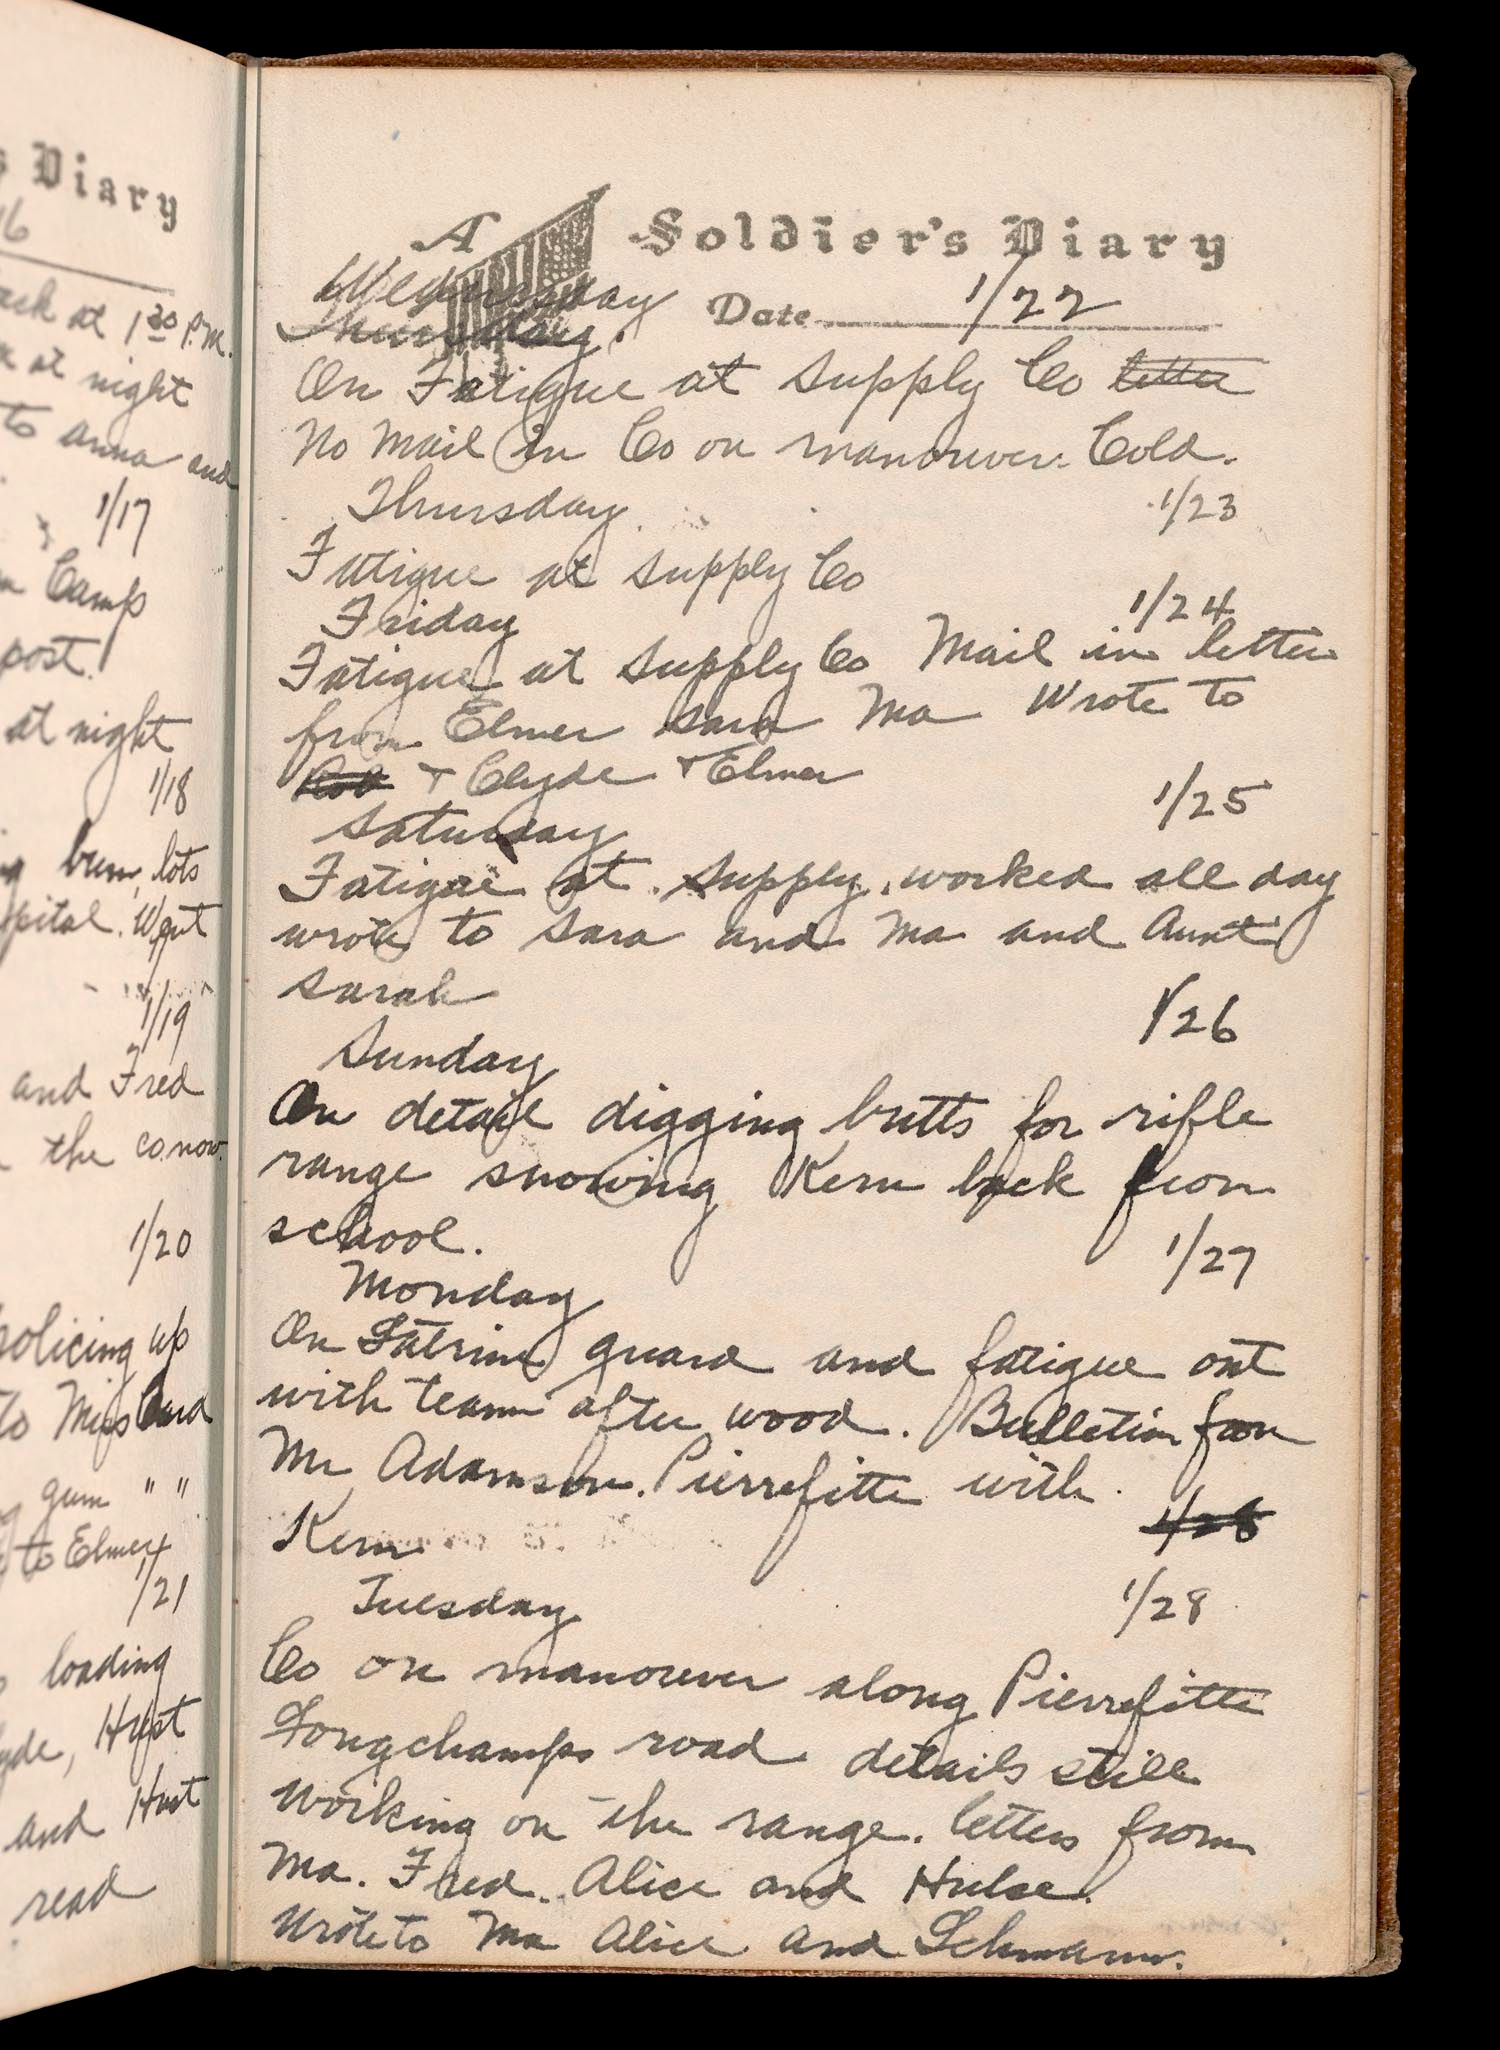 s Diary
16
at 1 30 P.M.
at night
to anna and
1/17
Camp
post.
at night
1/18
bum, lots
pital. Went
1/19
and Fred
the co. now.
1/20
policing up
to Miss
gum " "
to Elmer
1/21
loading
and
read
A Soldier's Diary
Wednesday Date 1/22
Thursday.
On Fatigue at Supply Co letter
No Mail in Co on manouver. Cold.
Thursday 1/23
Fatigue at Supply Co
Friday 1/24
Fatigue at Supply Co Mail in letter
from Elmer Sara Ma Wrote to
Rob + Clyde + Elmer
Saturday 1/25
Fatigue at Supply, worked all day
wrote to Sara and Ma and Aunt
Sarah
1/26
Sunday
On detail digging butts for rifle
range snowing Kern back from
school.
1/27
Monday
On Latrine guard and fatigue out
with team after wood. Bulletin from
Mr Adamson. Pierrefitte with
Kern 1/28
Tuesday 1/28
Co on manouver along Pierrefitte
Longchamps road details still
working on the range. letters from
Ma. Fred. Alice and Hulse.
Wrote to Ma Alice and Lehmann.